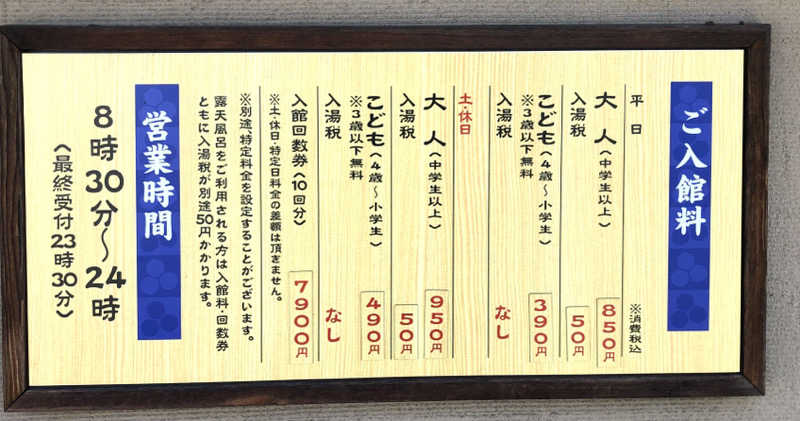 ご入館料
平日 ※消費税込
大人（中学生以上） 850円
入湯税 50円
こども（4歳～小学生） 390円
※3歳以下無料
入湯税 なし
土・休日
大人（中学生以上） 950円
入湯税 50円
こども（4歳～小学生） 490円
※3歳以下無料
入湯税 なし
入館回数券（10回分） 7900円
※土・休日・特定日料金の差額は頂きません。
※別途、特定料金を設定することがございます。
露天風呂をご利用される方は入館料・回数券
ともに入湯税が別途50円かかります。
営業時間
8時30分～24時
（最終受付23時30分）